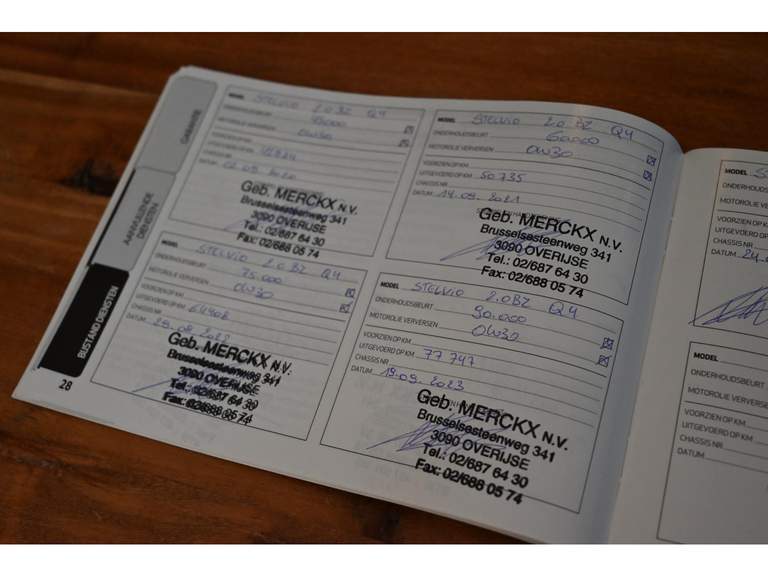 GARANTIE
AANVULLENDE
DIENSTEN
BIJSTAND DIENSTEN
28
MODEL STELVIO 2.0BZ Q4
ONDERHOUDSBEURT 45000
MOTOROLIE VERVERSEN OW30
VOORZIEN OP KM
UITGEVOERD OP KM
CHASSIS NR
DATUM 02.09.2020
Geb. MERCKX N.V.
Brusselsesteenweg 341
3090 OVERIJSE
Tel.: 02/687 64 30
Fax: 02/688 05 74
MODEL STELVIO 2.0BZ Q4
ONDERHOUDSBEURT 60000
MOTOROLIE VERVERSEN OW30
VOORZIEN OP KM
UITGEVOERD OP KM 50.735
CHASSIS NR
DATUM 14.09.2021
Geb. MERCKX N.V.
Brusselsesteenweg 341
3090 OVERIJSE
Tel.: 02/687 64 30
Fax: 02/688 05 74
MODEL STELVIO 2.0BZ Q4
ONDERHOUDSBEURT 75.000
MOTOROLIE VERVERSEN OW30
VOORZIEN OP KM
UITGEVOERD OP KM 64908
CHASSIS NR
DATUM 29.08.2022
Geb. MERCKX N.V.
Brusselsesteenweg 341
3090 OVERIJSE
Tel.: 02/687 64 30
Fax: 02/688 05 74
MODEL STELVIO 2.0BZ Q4
ONDERHOUDSBEURT 90.000
MOTOROLIE VERVERSEN OW30
VOORZIEN OP KM
UITGEVOERD OP KM 77747
CHASSIS NR
DATUM 19.09.2023
Geb. MERCKX N.V.
Brusselsesteenweg 341
3090 OVERIJSE
Tel.: 02/687 64 30
Fax: 02/688 05 74
MODEL
ONDERHOUDSBEURT
MOTOROLIE VERVERSEN
VOORZIEN OP KM
UITGEVOERD OP KM
CHASSIS NR
DATUM 24.0
MODEL
ONDERHOUDSBEURT
MOTOROLIE VERVERSEN
VOORZIEN OP KM
UITGEVOERD OP KM
CHASSIS NR
DATUM